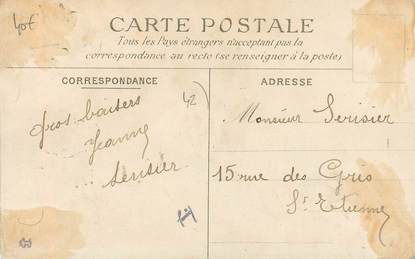 40€
CARTE POSTALE
Tous les Pays étrangers n'acceptant pas la
correspondance au recto (se renseigner à la poste)
CORRESPONDANCE
gros baisers
Jeanne
Serisier
42
ADRESSE
Monsieur Serisier
15 rue des Gris
St Etienne